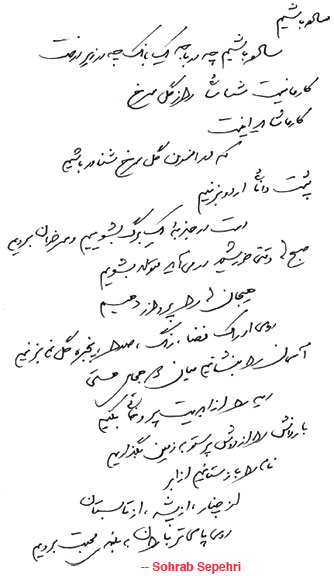 ساده باشیم
ساده باشیم چه در باجه یک بانک چه در زیر درخت
کار ما نیست شناسایی راز گل سرخ
کار ما شاید اینست
که در افسون گل سرخ شناور باشیم
پشت دانایی اردو بزنیم
دست در جذبه یک برگ بشوییم و سر خوان برویم
صبح ها وقتی خورشید در می آید متولد بشویم
هیجان ها را پرواز دهیم
روی ادراک فضا، رنگ، صدا، پنجره گل نم بزنیم
آسمان را بنشانیم میان دو هجای هستی
ریه را از ابدیت پر و خالی بکنیم
بار دانش را از دوش پرستو به زمین بگذاریم
نام را باز ستانیم از ابر
از چنار، از پشه، از تابستان
روی پای تر باران به بلندی محبت برویم
-- Sohrab Sepehri